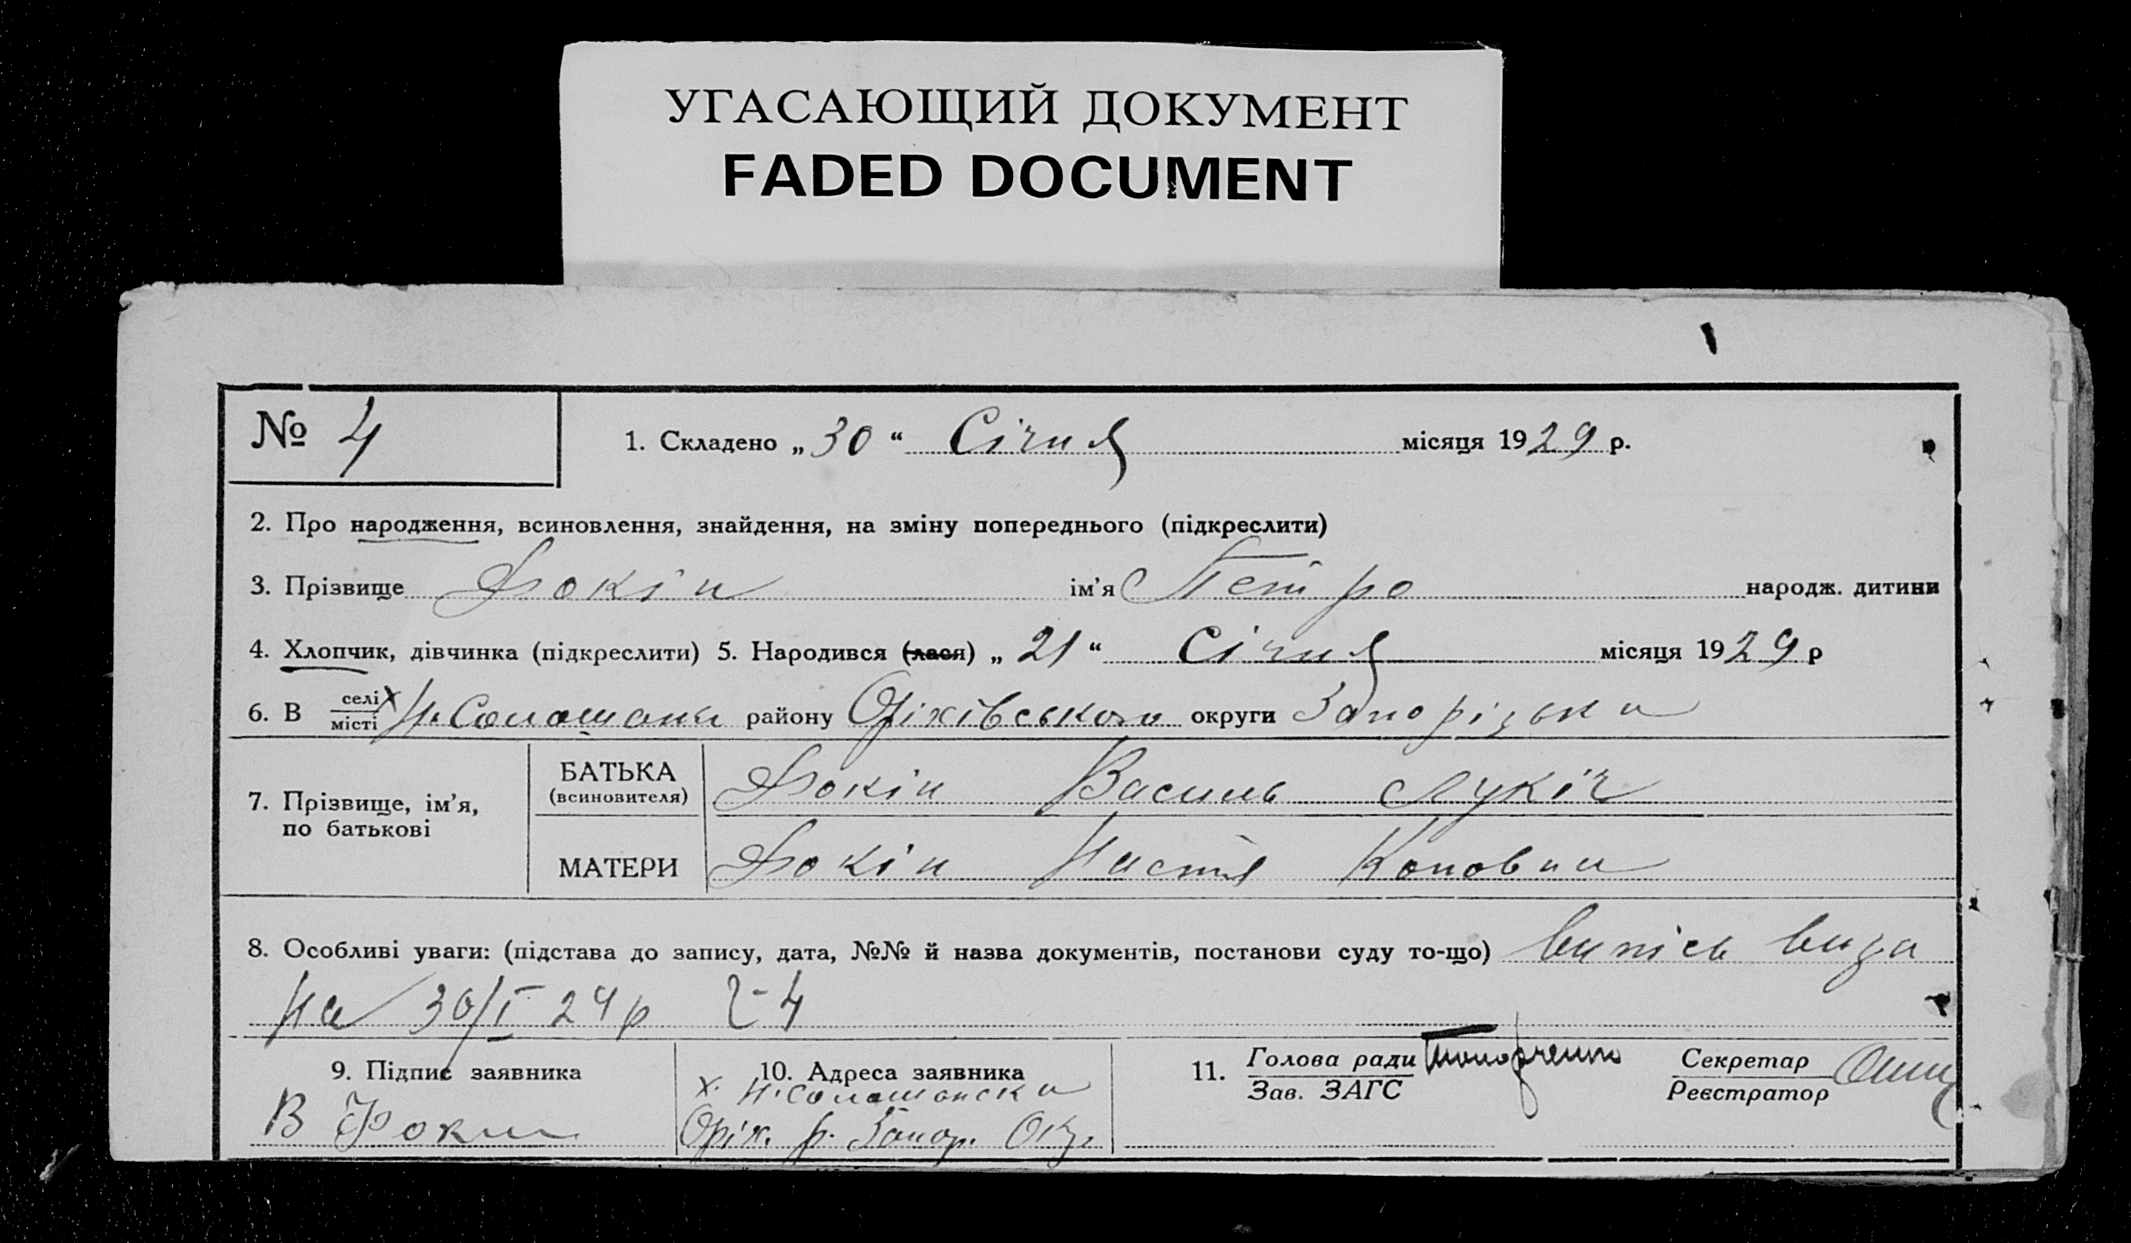 УГАСАЮЩИЙ ДОКУМЕНТ
FADED DOCUMENT
№ 4
1. Складено „30“ Січня місяця 1929 р.
2. Про народження, всиновлення, знайдення, на зміну попереднього (підкреслити)
3. Прізвище Фокін ім'я Петро народж. дитини
4. Хлопчик, дівчинка (підкреслити) 5. Народився (лася) „21“ Січня місяця 1929 р
6. В селі/місті х Н. району Оріхівського округи Запорізьки
7. Прізвище, ім'я, по батькові
БАТЬКА (всиновителя) Фокін Василь Лукіч
МАТЕРИ Фокін Настя
8. Особливі уваги: (підстава до запису, дата, №№ й назва документів, постанови суду то-що) випісь вида
на 30/I 29 р 4
9. Підпис заявника
В Фокин
10. Адреса заявника
х. Н.
Оріх. р. Запор. Окр.
11. Голова ради
Зав. ЗАГС
Секретар
Реєстратор